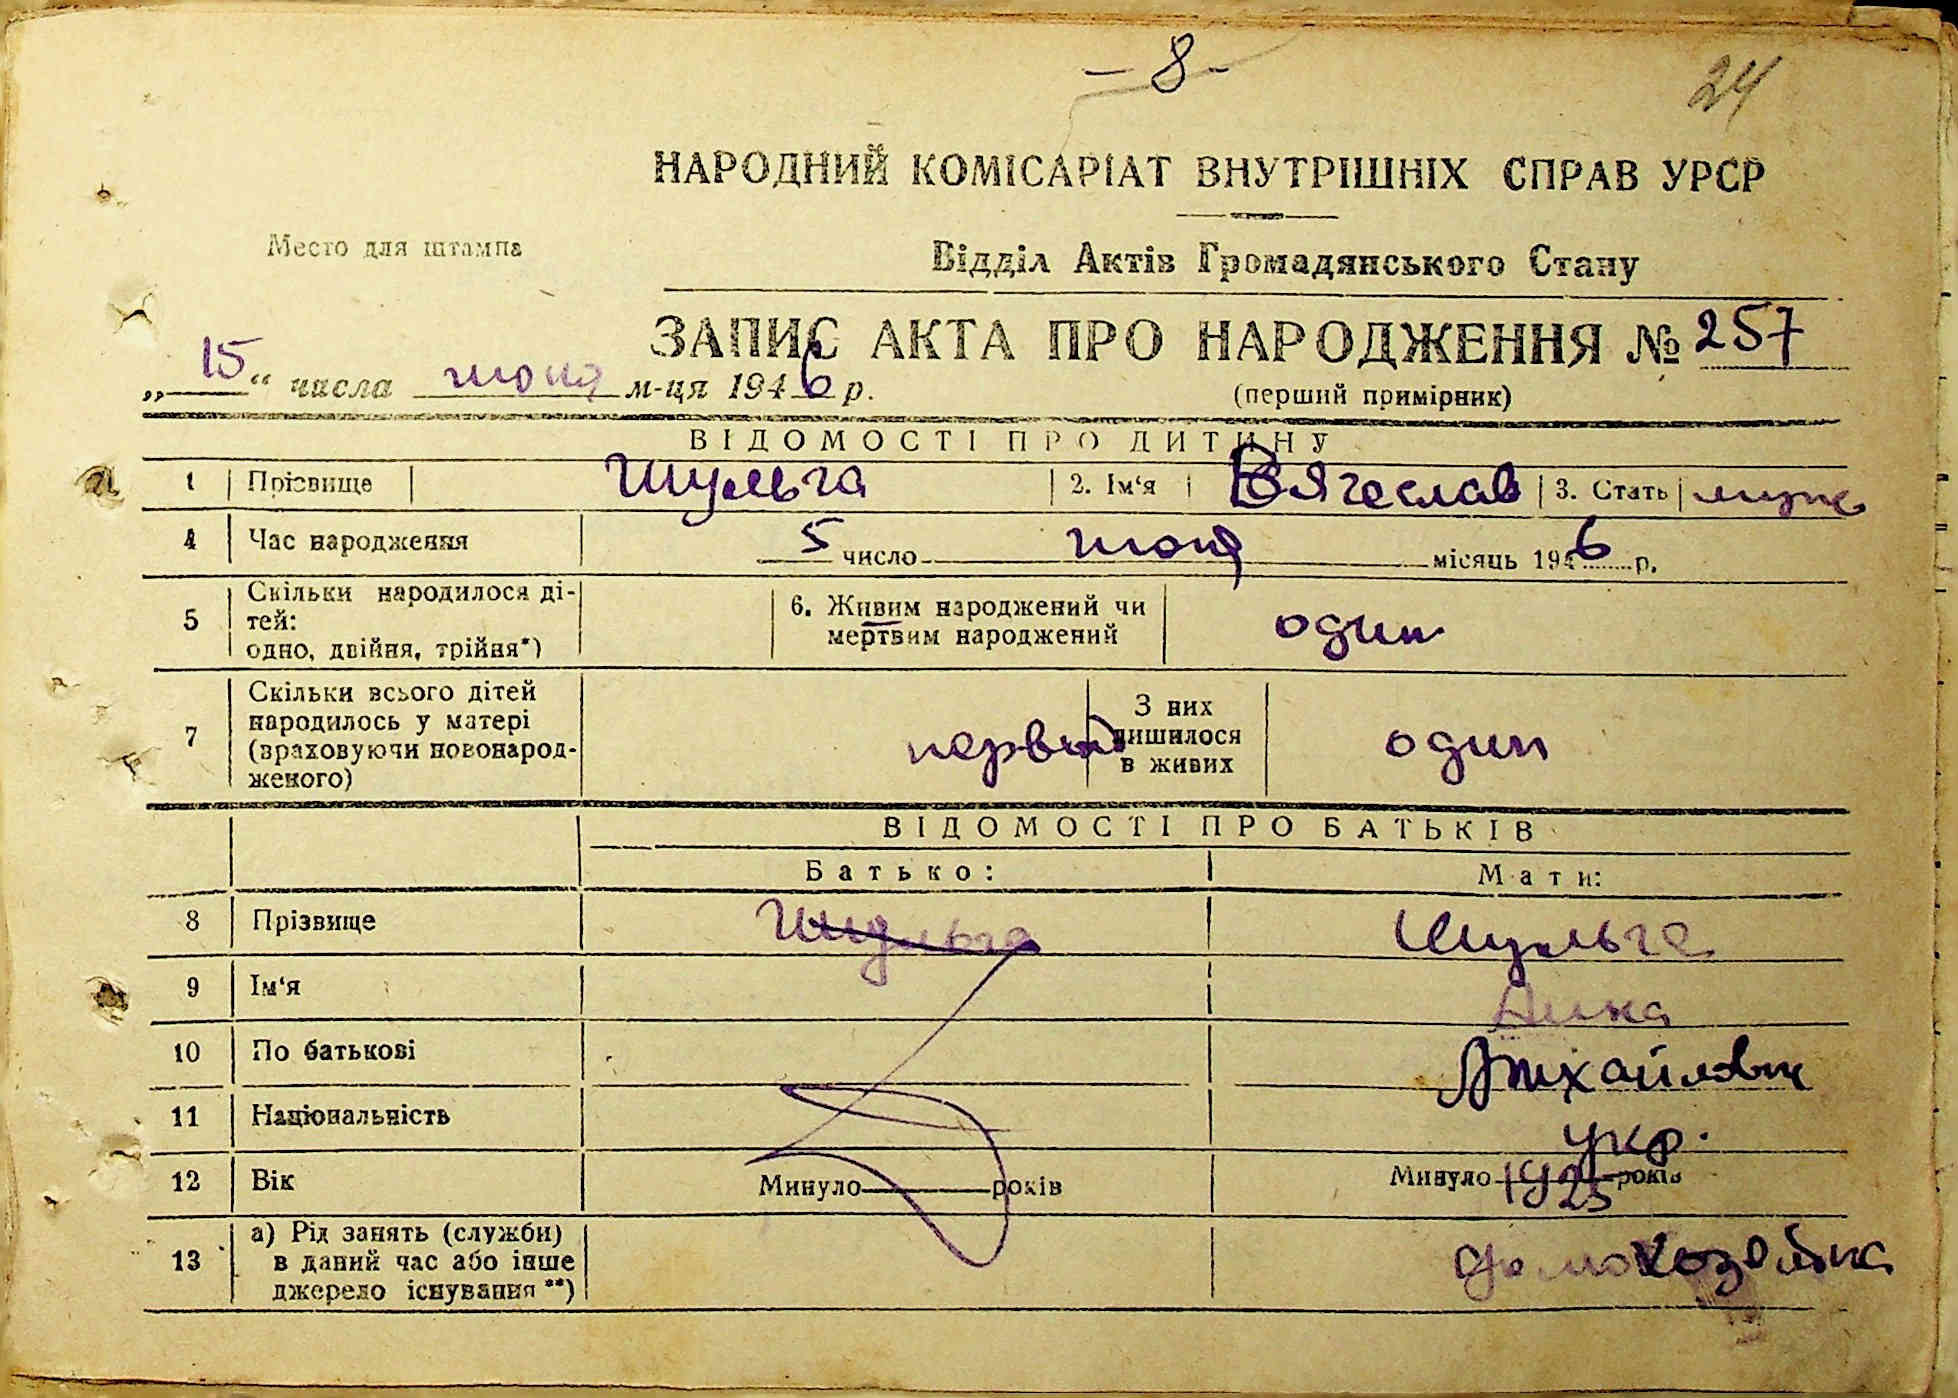 - 8 -
24
НАРОДНИЙ КОМІСАРІАТ ВНУТРІШНІХ СПРАВ УРСР
Место для штампа
Відділ Актів Громадянського Стану
ЗАПИС АКТА ПРО НАРОДЖЕННЯ № 257
„15“ числа июня м-ця 1946 р.
(перший примірник)
ВІДОМОСТІ ПРО ДИТИНУ
1 Прізвище Шульга 2. Ім‘я Вячеслав 3. Стать муж
4 Час народження 5 число июня місяць 1946 р.
5 Скільки народилося ді-
тей:
одно, двійня, трійня*)
6. Живим народжений чи
мертвим народжений
один
7 Скільки всього дітей
народилось у матері
(враховуючи новонарод-
женого)
первый
З них
лишилося
в живих
один
ВІДОМОСТІ ПРО БАТЬКІВ
Батько: Мати:
8 Прізвище Шульга Шульга
9 Ім‘я Анна
10 По батькові Михайловн
11 Національність укр.
12 Вік Минуло років Минуло 1925 років
13 а) Рід занять (служби)
в даний час або інше
джерело існування **)
домохозяйка